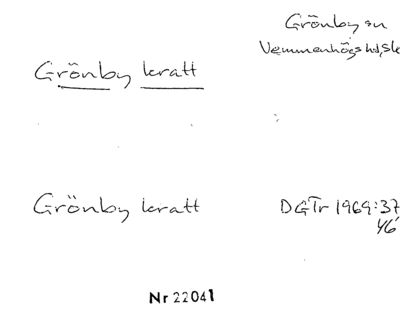 Grönby sn
Vemmenhögs hd, Sk
Grönby kratt
Grönby kratt
DGTr 1969:37
46
Nr 22041